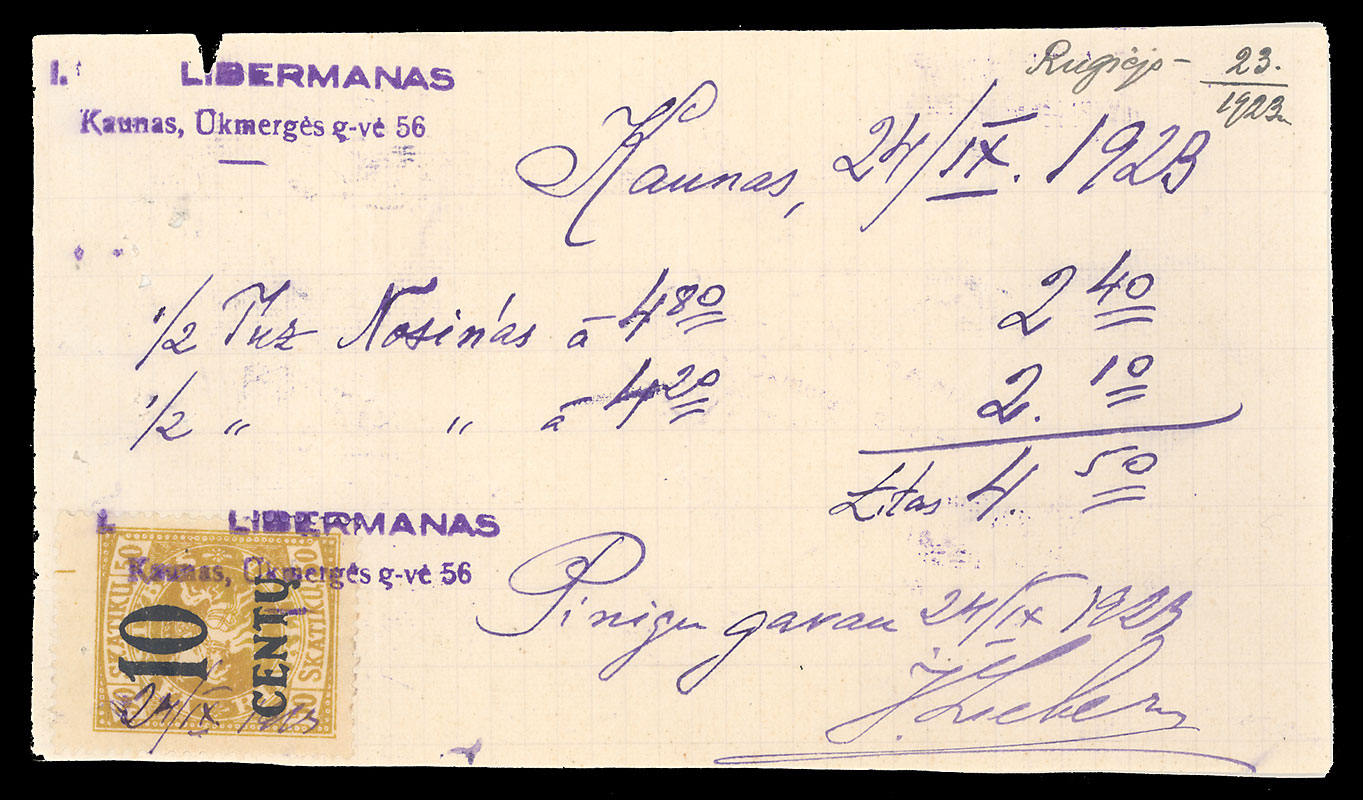 I. LIBERMANAS
Kaunas, Ūkmergės g-vė 56
Rugsėjo - 23.
1923 m
Kaunas, 24/IX. 1923
1/2 Tuz Nosinas à 4 80 2 40
1/2 " " à 4 20 2. 10
Litas 4. 50
I. LIBERMANAS
Kaunas, Ūkmergės g-vė 56
Pinigu gavau 24/IX 1923
SKATIKŲ 50
SKATIKŲ 50
10
CENTŲ
24/IX 1923